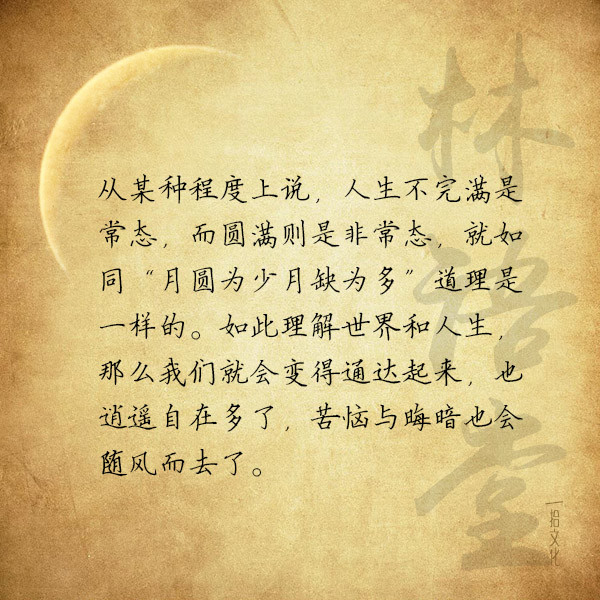 从某种程度上说，人生不完满是
常态，而圆满则是非常态，就如
同“月圆为少月缺为多”道理是
一样的。如此理解世界和人生，
那么我们就会变得通达起来，也
逍遥自在多了，苦恼与晦暗也会
随风而去了。
林语堂
拾文化